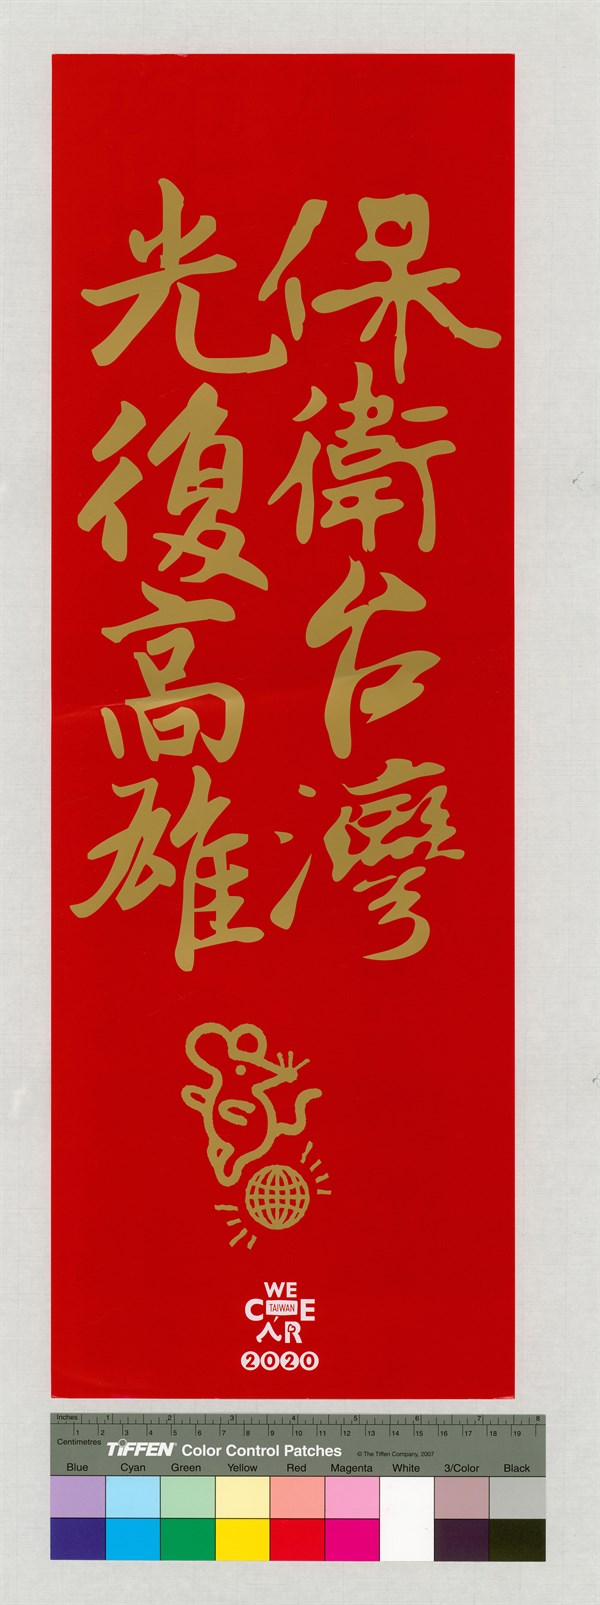 保衛台灣
光復高雄
WE
C TAIWAN E
人R
2020
Inches 1 2 3 4 5 6 7 8
Centimetres 1 2 3 4 5 6 7 8 9 10 11 12 13 14 15 16 17 18 19
TIFFEN® Color Control Patches © The Tiffen Company, 2007
Blue Cyan Green Yellow Red Magenta White 3/Color Black